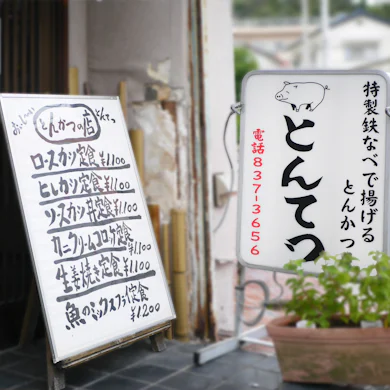 おいしい
とんかつの店
とんてつ
ロースカツ定食 ¥1,100
ヒレカツ定食 ¥1,100
ソースカツ丼定食 ¥1,100
カニクリームコロッケ定食 ¥1,100
生姜焼き定食 ¥1,100
魚のミックスフライ定食
¥1200
特製鉄なべで揚げる
とんかつ
とんてつ
電話837-3656